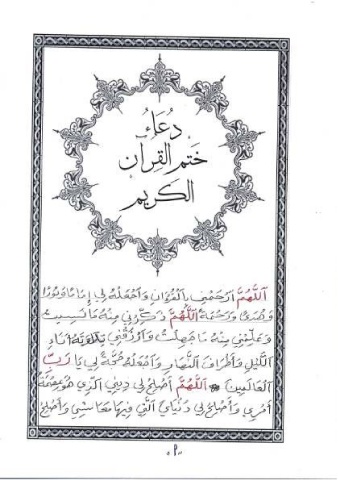 دُعَاءُ
خَتْمِ الْقُرْآنِ
الْكَرِيمِ
اَللّٰهُمَّ ارْحَمْنِي بِالْقُرْآنِ وَاجْعَلْهُ لِي إِمَامًا وَنُورًا
وَهُدًى وَرَحْمَةً اَللّٰهُمَّ ذَكِّرْنِي مِنْهُ مَا نَسِيتُ
وَعَلِّمْنِي مِنْهُ مَا جَهِلْتُ وَارْزُقْنِي تِلَاوَتَهُ آنَاءَ
اللَّيْلِ وَأَطْرَافَ النَّهَارِ وَاجْعَلْهُ حُجَّةً لِي يَا رَبَّ
الْعَالَمِينَ * اَللّٰهُمَّ أَصْلِحْ لِي دِينِي الَّذِي هُوَ عِصْمَةُ
أَمْرِي وَأَصْلِحْ لِي دُنْيَايَ الَّتِي فِيهَا مَعَاشِي وَأَصْلِحْ